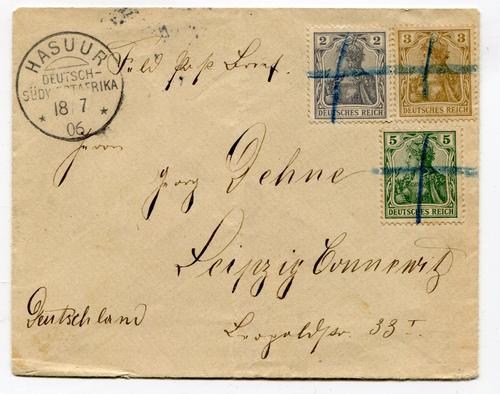 HASUUR
DEUTSCH-
SÜDWESTAFRIKA
18 7
06
2
DEUTSCHES REICH
3
DEUTSCHES REICH
5
DEUTSCHES REICH
Feld Brief.
Herrn
Georg Dehne
Leipzig Connewitz
Deutschland
Leopoldstr. 33 I.